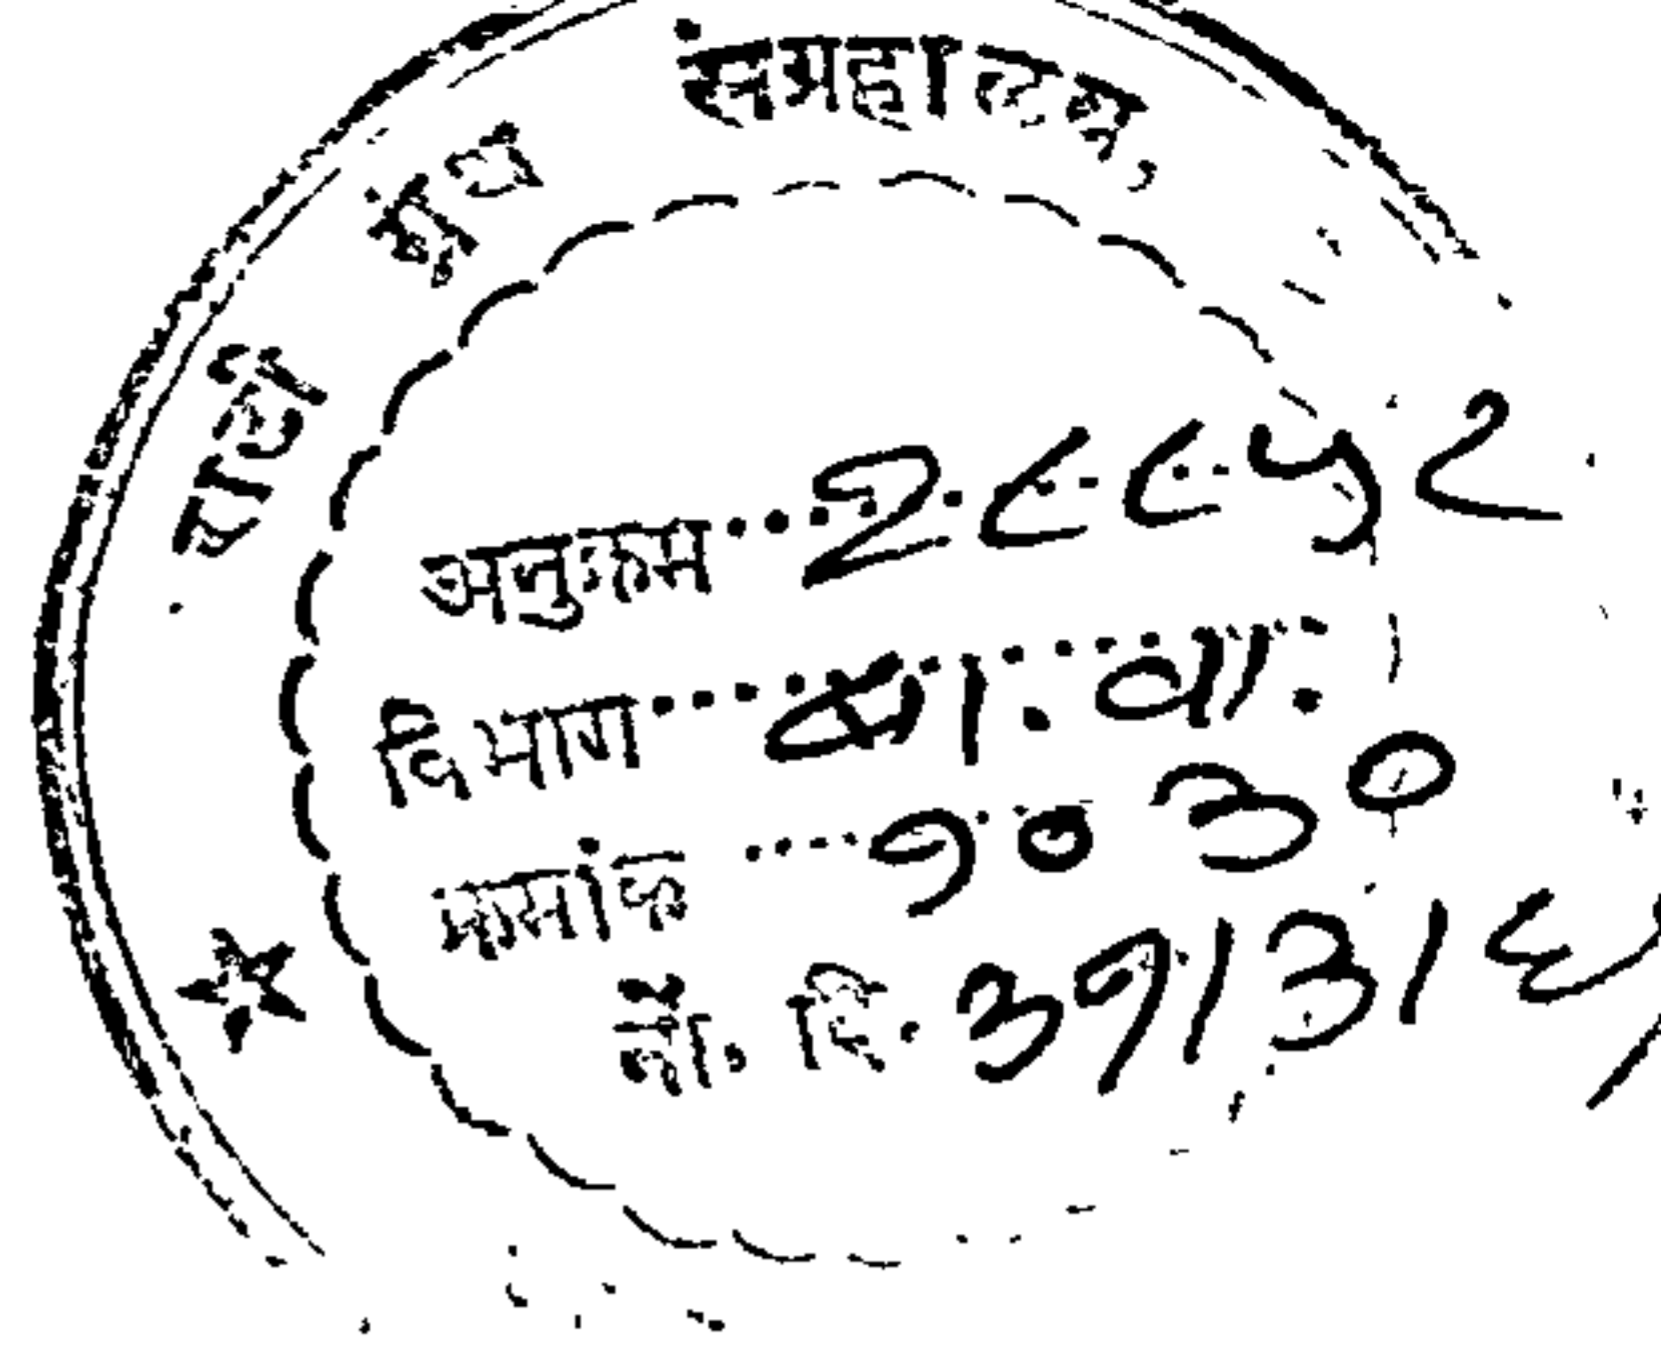 ग्रंथ संग्रहालय,
अनुक्रम २८८५२
विभाग बा. वा.
क्रमांक १०३०
नों. दि. ३१।३।६